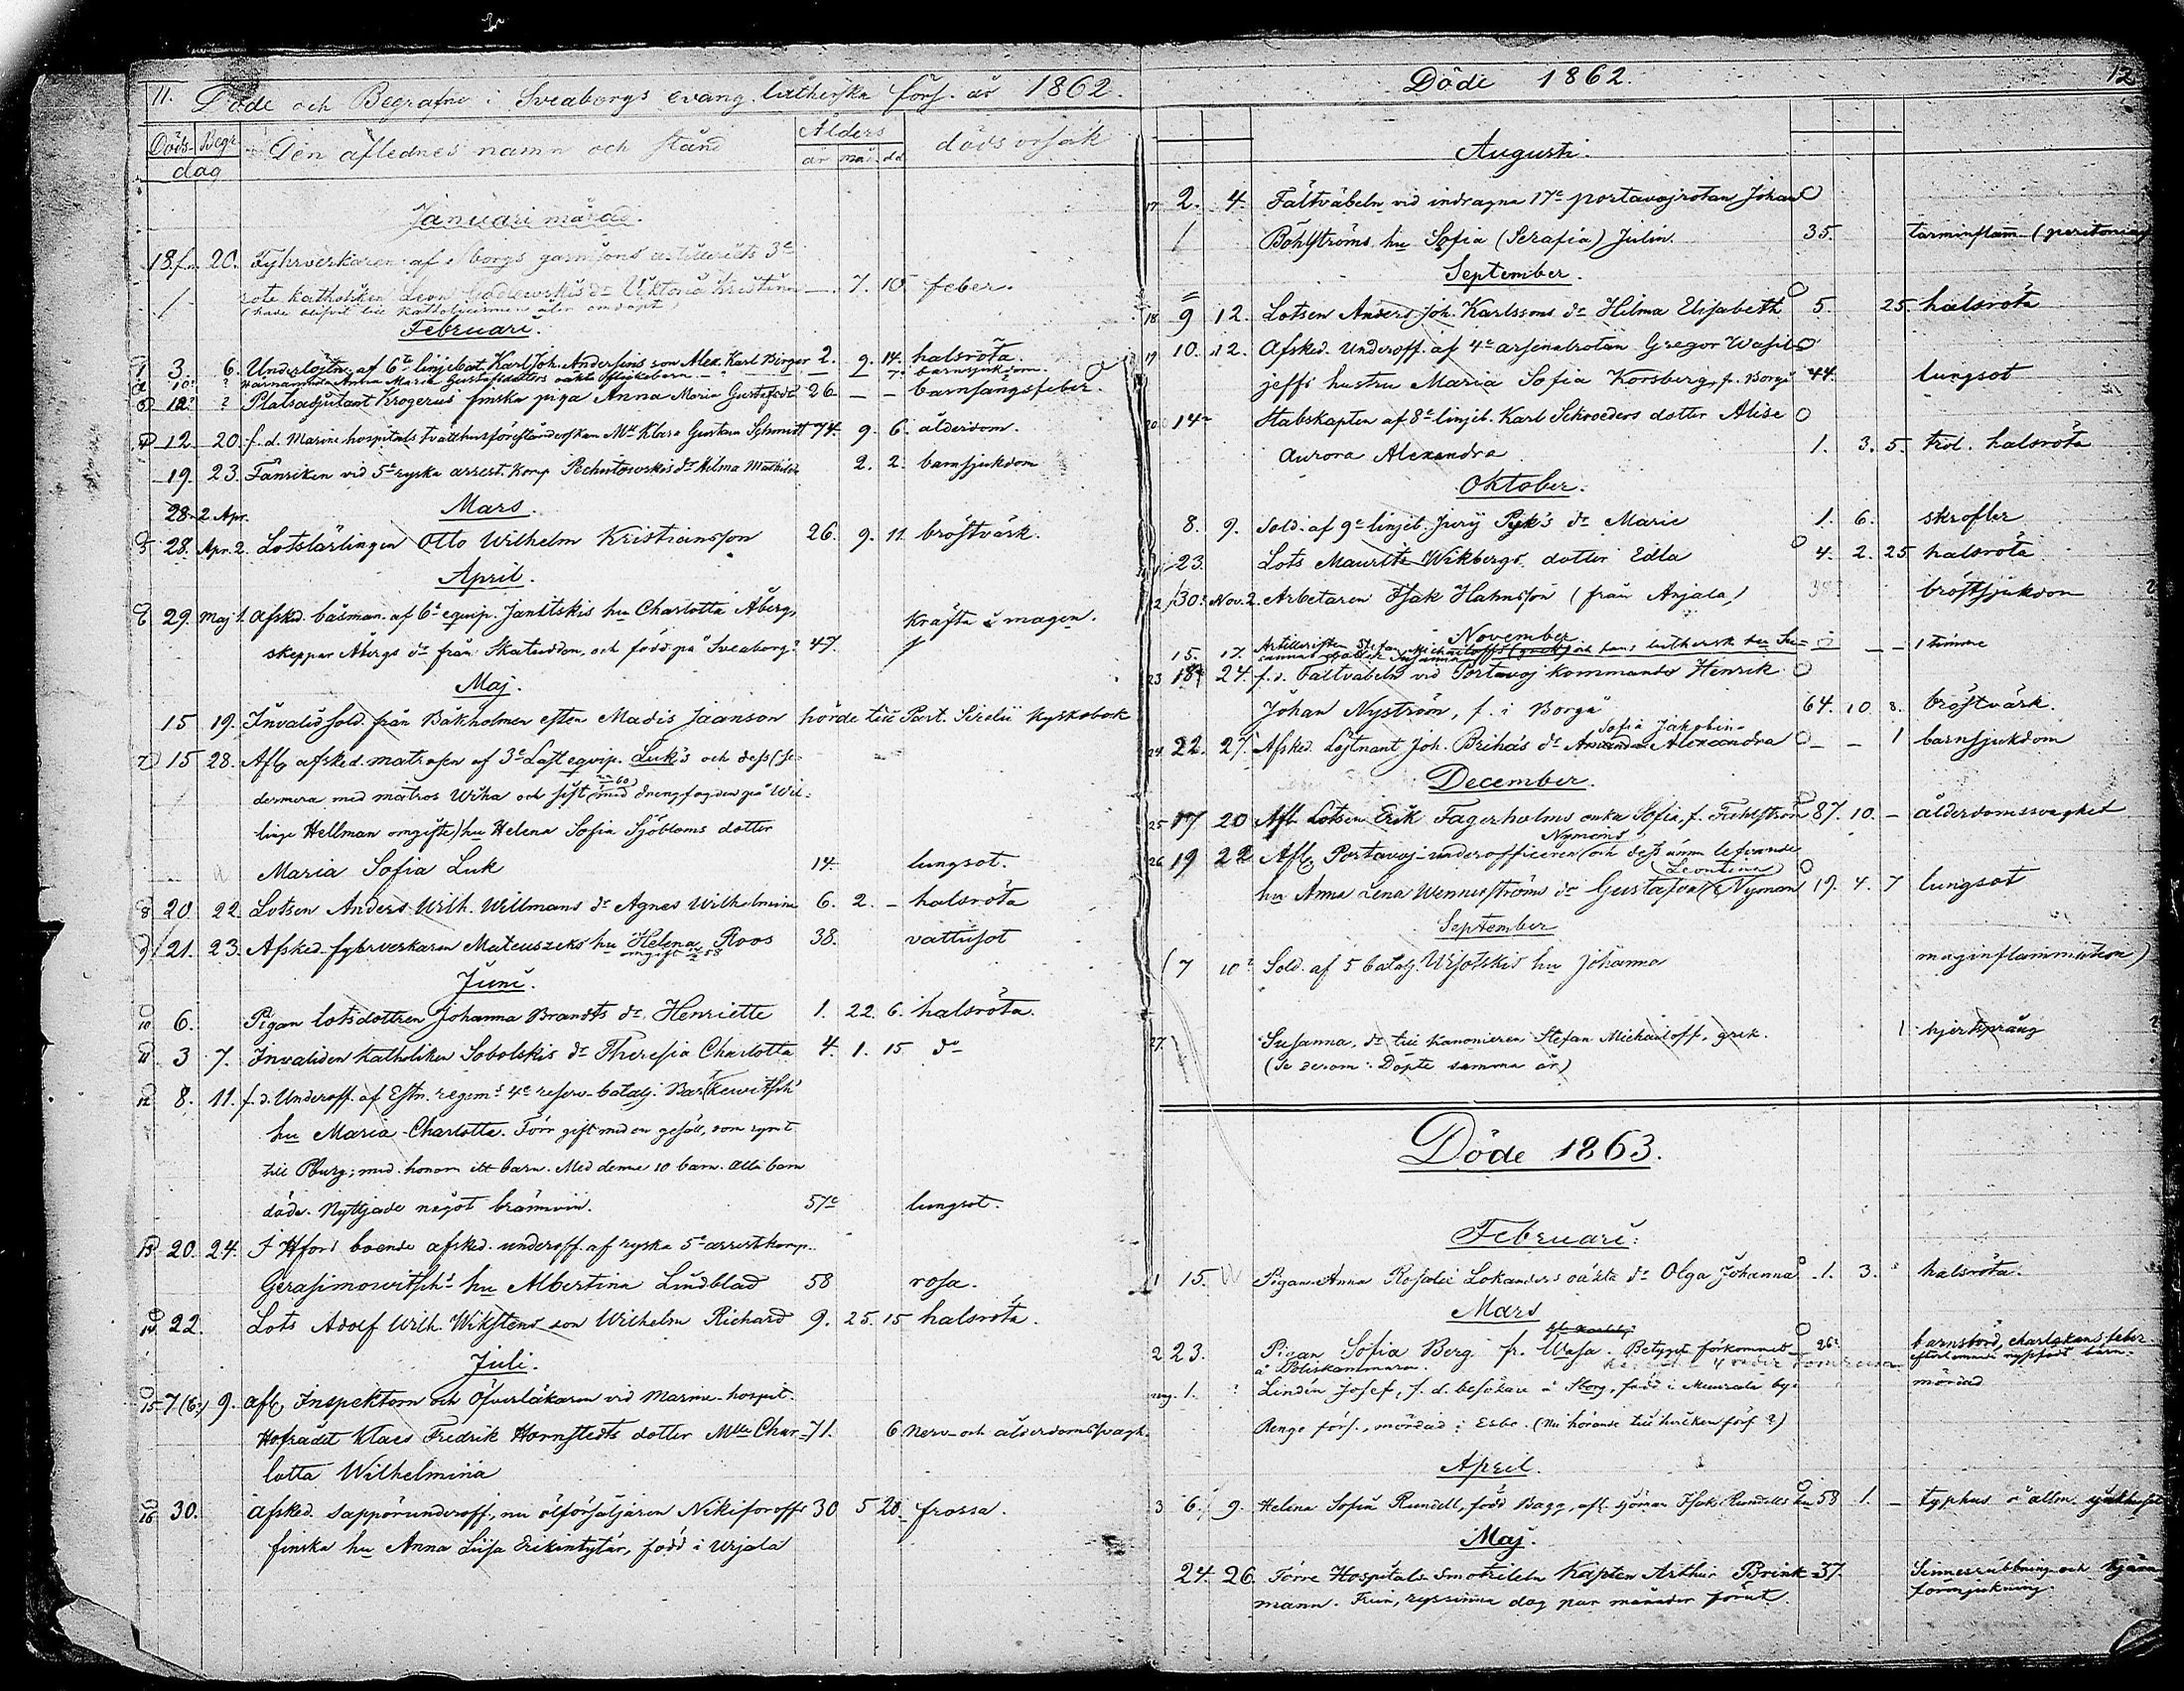 11. Döde och Begrafne i Sveaborgs evang. lutherska förs. år 1862.
Döds- Begr. dag Den aflednes namn och stånd Ålders år mån. dd. dödsorsak
Januari månad.
18. 20. Fyhrverkaren af borgs garnisons artilleriets 3e
rote katholiken Leon d:r Viktoria Kristina — 7. 10 feber.
Februari.
1 3. 6. Underlöjtn. af 6te linjebat. Karl Joh. Andersins son Alex. Karl Birger 2. 9. 14. halsröta.
2 10? ? Anna Maria Gustafsdotters oäkta flickebarn — — 7. barnsjukdom.
3 12? ? Platsadjutant Krogerus finska piga Anna Maria Gustafsd:r 26 — — barnsängsfeber.
4 12 20. f.d. Marine hospitals tvätthusföreståndersk an M:ll Klara Gustava Schmidt 74. 9. 6. ålderdom.
19. 23. Fänriken vid 5te ryska arrest. komp. d:r Hilma Mathilda 2. 2. barnsjukdom
28. 2 Apr. Mars.
5 28. Apr. 2. Lotslärlingen Otto Wilhelm Kristiansson 26. 9. 11. bröstvärk.
April.
6 29. Maj 1. Afsked. båsman. af 6e equip. Janitskis hu Charlotta Åberg, kräfta i magen.
skeppar Åbergs d:r från Skatudden, och född på Sveaborg? 47.
Maj.
15 19. Invalidsold. från Bakholmen esten Madis Jaanson hörde till Past. Sirelii kyrkobok
7 15 28. Afl. afsked. matrosen af 3e Last equip. Luk's och dess (se-
dermera med matros Wiha och sist med drengfogden på Wil-
linge Hellman omgifte) hu Helena Sofia Sjöbloms dotter
Maria Sofia Luk 14. lungsot.
8 20 22. Lotsen Anders Wilh. Willmans d:r Agnes Wilhelmina 6. 2. — halsröta
9 21. 23. Afsked. fyhrverkaren Mateuszeks hu Helena Roos 38. vattusot
omgift 58
Juni.
10 6. Pigan lotsdottren Johanna Brandts d:r Henriette 1. 22. 6. halsröta.
11 3 7. Invaliden katholiken Sobolskis d:r Theresia Charlotta 4. 1. 15 d:o
12 8. 11. f.d. Underoff. af Estn. regem:s 4e reserv-batalj. Barkewitsch's
hu Maria Charlotta. Förr gift med en gesäll, som rymt
till Pburg; med honom ett barn. Med denne 10 barn. Alla barn
döda. Nyttjade något brännvin. 57 lungsot.
13 20. 24. I Hfors boende afsked. underoff. af ryska 5e arrestkomp.
Gerasimowitsch's hu Albertina Lindblad 58 rosa.
14 22. Lots Adolf Wilh. Wikstens son Wilhelm Richard 9. 25. 15 halsröta.
Juli.
15 7 (6?) 9. Afl. Inspektorn och Öfverläkaren vid Marine-hospit.
Hofrådet Klaes Fredrik Hornstedts dotter M:lle Char- 71. 6 Nerv- och ålderdomssvagh.
lotta Wilhelmina
16 30. Afsked. sappörunderoff., nu ölförsäljaren Nikiforoffs 30 5 20. frossa.
finska hu Anna Liisa Erikintytär, född i Urjala
Döde 1862. 12
Augusti.
17 2. 4. Fältväbeln vid indragna 17e portavojrotan Johan
Bohlströms hu Sofia (Serafia) Julin. 35. tarminflam
September.
18 9 12. Lotsen Anders Joh. Karlssons d:r Hilma Elisabeth 5. 25. halsröta
19 10. 12. Afsked. Underoff. af 4e arsenalrotan Gregor Wasil-
jeffs hustru Maria Sofia Korsberg, fr. Borgå 44. lungsot
20 14 Stabskapten af 8e linjeb. Karl Schroeders dotter Alise
Aurora Alexandra 1. 3. 5. trol. halsröta
Oktober.
8. 9. Sold. af 9e linjeb. Jurij Pyk's d:r Marie 1. 6. skrofler
23. Lots Mauritz Wikbergs dotter Edla 4. 2. 25 halsröta
30? Nov. 2. Arbetaren Isak Hahnsson (från Anjala) bröstsjukdom
November
15. 17. Artilleristen Stefan Michailoffs (grek) och hans luthersk hu Su-
sannas dotter Susanna — — 1 timme
23 18 24. f.d. Fältväbeln vid Portavoj kommando Henrik
Johan Nyström, f. i Borgå 64. 10. 8. bröstvärk.
Sofia Jakobin-
24 22. 27. Afsked. Löjtnant Joh. Brihas d:r Amanda Alexandra — — 1 barnsjukdom
December.
25 17 20 Afl. Lotsen Erik Fagerholms enka Sofia, f. 87. 10. — ålderdomssvaghet
Nymans
26 19 22 Afl. Portavoj-underofficeren och dess ännu lefvande
Leontina
hu Anna Lena Wennerströms d:r Gustafva Nyman 19. 4. 7 lungsot
September
7 10? Sold. af 5 batalj. Ursotskis hu Johanna maginflammation)
27. Susanna, d:r till Kanonieren Stefan Michailoff, grek. 1 hjertsprång
(Se derom: Döpte samma år)
Döde 1863.
Februari.
1 15. Pigan Anna Rosalie Lokanders oäkta d:r Olga Johanna 1. 3. halsröta.
Mars
2 23. Pigan Sofia Berg fr. Wasa. Betyget förkommet 26? barnsbörd,
å Poliskammaren.
1. ? Lindén Josef, f.d. besökare å Sborg, född i by, mördad
Rengo förs., mördad i Esbo. (Nu hörande till hvilken förs.?)
April.
3 6. 9. Helena Sofia Rundell, född Bagg, afl. sjöman Isak Rundells hu 58 1. — typhus
Maj.
24. 26. Förre Hospitals Smotriteln Kapten Arthur Brink- 37. Sinnesrubbning och hjärn-
mann. Frun, ryssinna dog par månader förut. förmjukning.